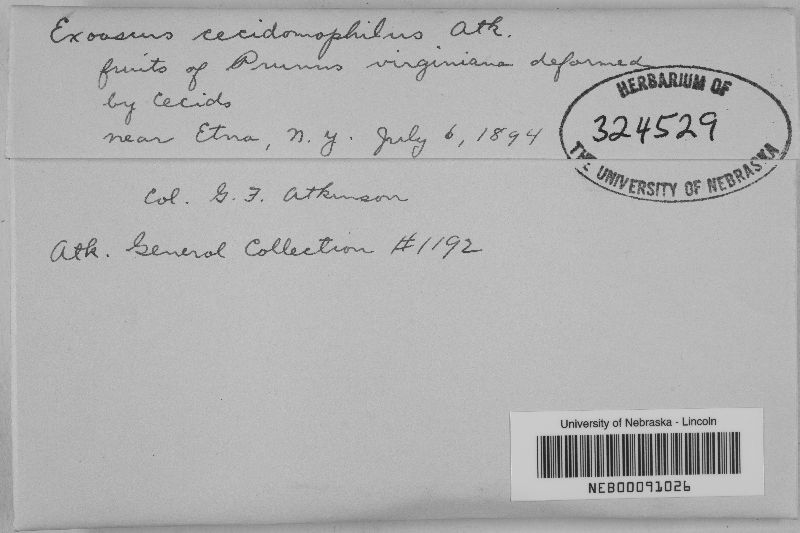 Exoascus cecidomophilus Atk.
fruits of Prunus virginiana deformed
by Cecids
near Etna, N. Y. July 6, 1894
Col. G. F. Atkinson
Atk. General Collection #1192
HERBARIUM OF
324529
THE UNIVERSITY OF NEBRASKA
University of Nebraska - Lincoln
NEB00091026